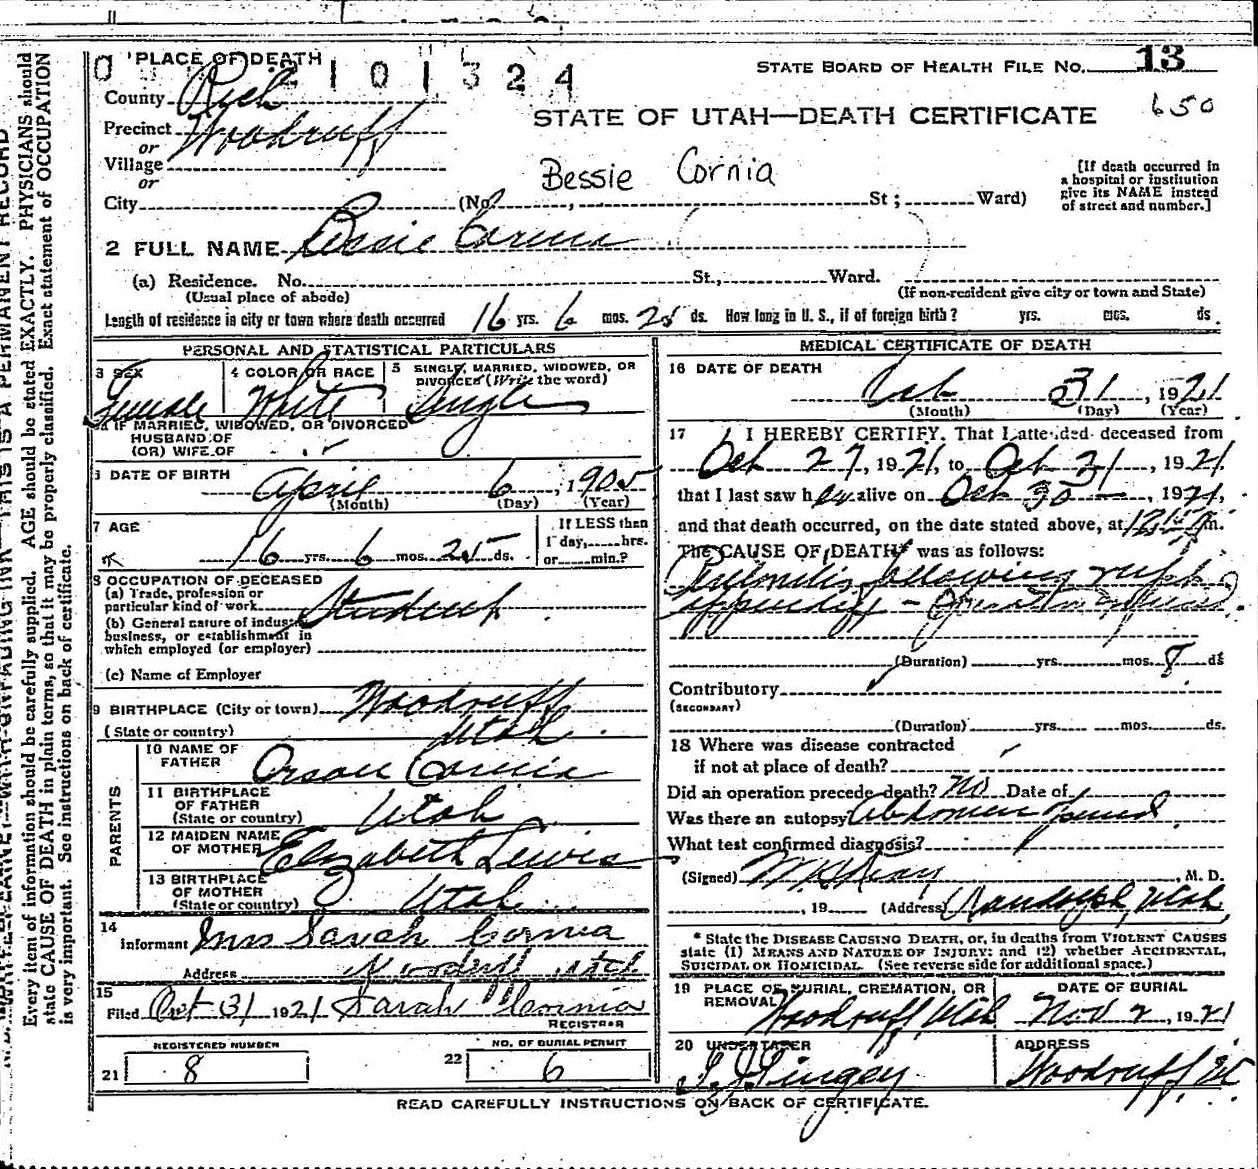 1 PLACE OF DEATH
0 101324
STATE BOARD OF HEALTH FILE No. 13
County Rich
650
STATE OF UTAH—DEATH CERTIFICATE
Precinct Woodruff
or
Village
or
Bessie Cornia
[If death occurred in
a hospital or institution
give its NAME instead
of street and number.]
City (No. , St ; Ward)
2 FULL NAME Bessie Cornia
(a) Residence. No. St., Ward.
(Usual place of abode)
(If non-resident give city or town and State)
Length of residence in city or town where death occurred 16 yrs. 6 mos. 25 ds. How long in U. S., if of foreign birth? yrs. mos. ds.
PERSONAL AND STATISTICAL PARTICULARS
3 SEX
Female
4 COLOR OR RACE
White
5 SINGLE, MARRIED, WIDOWED, OR
DIVORCED (Write the word)
Single
5a IF MARRIED, WIDOWED, OR DIVORCED
HUSBAND OF
(OR) WIFE OF
6 DATE OF BIRTH
April 6, 1905
(Month) (Day) (Year)
7 AGE
16 yrs. 6 mos. 25 ds.
If LESS than
1 day, hrs.
or min.?
8 OCCUPATION OF DECEASED
(a) Trade, profession or
particular kind of work Student
(b) General nature of industry,
business, or establishment in
which employed (or employer)
(c) Name of Employer
9 BIRTHPLACE (City or town) Woodruff
(State or country) Utah
PARENTS
10 NAME OF
FATHER Orson Cornia
11 BIRTHPLACE
OF FATHER
(State or country) Utah
12 MAIDEN NAME
OF MOTHER Elizabeth Lewis
13 BIRTHPLACE
OF MOTHER
(State or country) Utah
14
Informant Mrs Sarah Cornia
Address Woodruff Utah
15
Filed Oct 31 1921 Sarah Cornia
REGISTRAR
REGISTERED NUMBER
21 8
NO. OF BURIAL PERMIT
22 6
MEDICAL CERTIFICATE OF DEATH
16 DATE OF DEATH
Oct 31, 1921
(Month) (Day) (Year)
17 I HEREBY CERTIFY. That I attended deceased from
Oct 27, 1921, to Oct 31, 1921
that I last saw her alive on Oct 30, 1921,
and that death occurred, on the date stated above, at m.
The CAUSE OF DEATH* was as follows:
following
(Duration) yrs. mos. 8 ds
Contributory
(SECONDARY)
(Duration) yrs. mos. ds.
18 Where was disease contracted
if not at place of death?
Did an operation precede death? No Date of
Was there an autopsy Abdomen opened
What test confirmed diagnosis?
(Signed) M. D.
, 19 (Address) Randolph, Utah
* State the DISEASE CAUSING DEATH, or, in deaths from VIOLENT CAUSES
state (1) MEANS AND NATURE OF INJURY: and (2) whether ACCIDENTAL,
SUICIDAL OR HOMICIDAL. (See reverse side for additional space.)
19 PLACE OF BURIAL, CREMATION, OR
REMOVAL Woodruff, Utah
DATE OF BURIAL
Nov 2, 1921
20 UNDERTAKER
Tingey
ADDRESS
Woodruff, Ut
READ CAREFULLY INSTRUCTIONS ON BACK OF CERTIFICATE.
THIS IS A PERMANENT RECORD
Every item of information should be carefully supplied. AGE should be stated EXACTLY. PHYSICIANS should
state CAUSE OF DEATH in plain terms, so that it may be properly classified. Exact statement of OCCUPATION
is very important. See instructions on back of certificate.